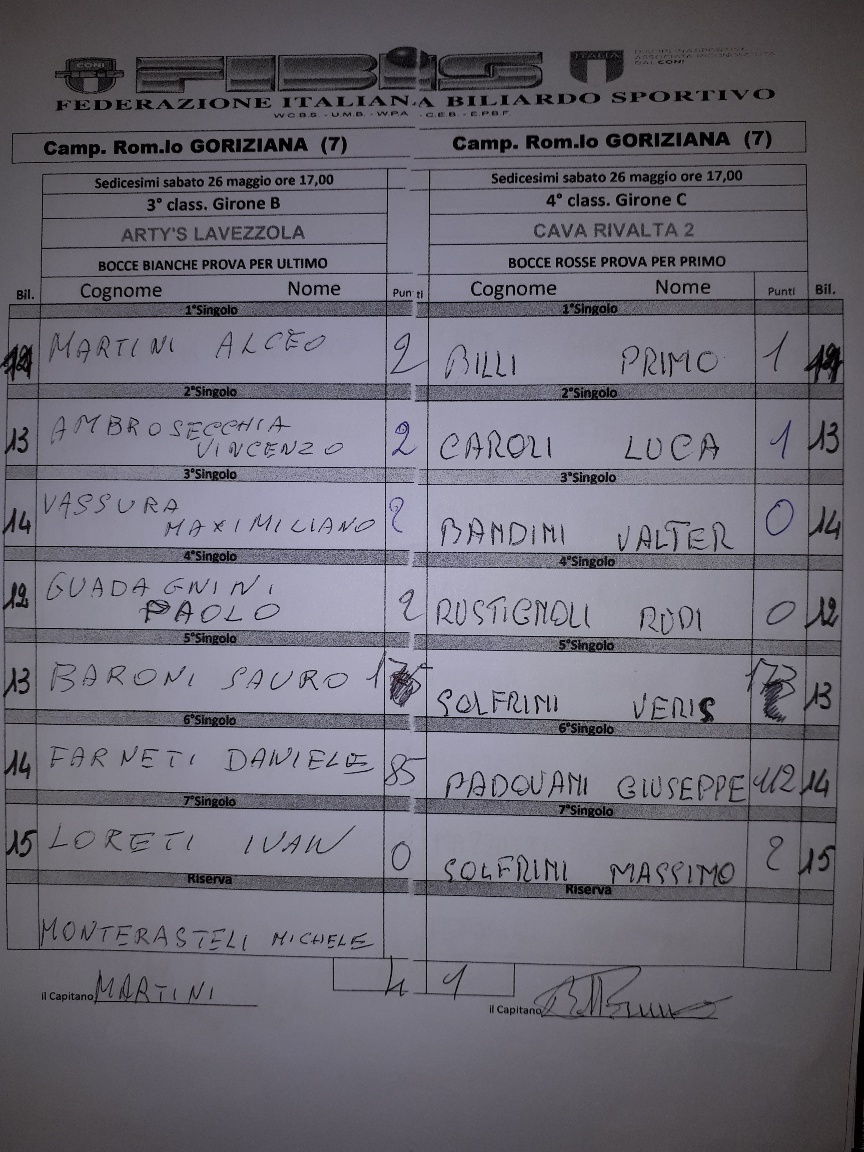 CONI FIBiS ITALIA DISCIPLINA SPORTIVA ASSOCIATA RICONOSCIUTA DAL CONI
FEDERAZIONE ITALIANA BILIARDO SPORTIVO
W.C.B.S. - U.M.B. - W.P.A. - C.E.B. - E.P.B.F.
Camp. Rom.lo GORIZIANA (7) Camp. Rom.lo GORIZIANA (7)
Sedicesimi sabato 26 maggio ore 17,00 Sedicesimi sabato 26 maggio ore 17,00
3° class. Girone B 4° class. Girone C
ARTY'S LAVEZZOLA CAVA RIVALTA 2
BOCCE BIANCHE PROVA PER ULTIMO BOCCE ROSSE PROVA PER PRIMO
Bil. Cognome Nome Punti Cognome Nome Punti Bil.
1°Singolo 1°Singolo
MARTINI ALCEO 2 BILLI PRIMO 1
2°Singolo 2°Singolo
13 AMBROSECCHIA VINCENZO 2 CAROLI LUCA 1 13
3°Singolo 3°Singolo
14 VASSURA MAXIMILIANO 2 BANDINI VALTER 0 14
4°Singolo 4°Singolo
12 GUADAGNINI PAOLO 2 RUSTIGNOLI RUDI 0 12
5°Singolo 5°Singolo
13 BARONI SAURO SOLFRINI VERIS 13
6°Singolo 6°Singolo
14 FARNETI DANIELE 85 PADOVANI GIUSEPPE 112 14
7°Singolo 7°Singolo
15 LORETI IVAN 0 SOLFRINI MASSIMO 2 15
Riserva Riserva
MONTERASTELI MICHELE
4 1
il Capitano MARTINI il Capitano